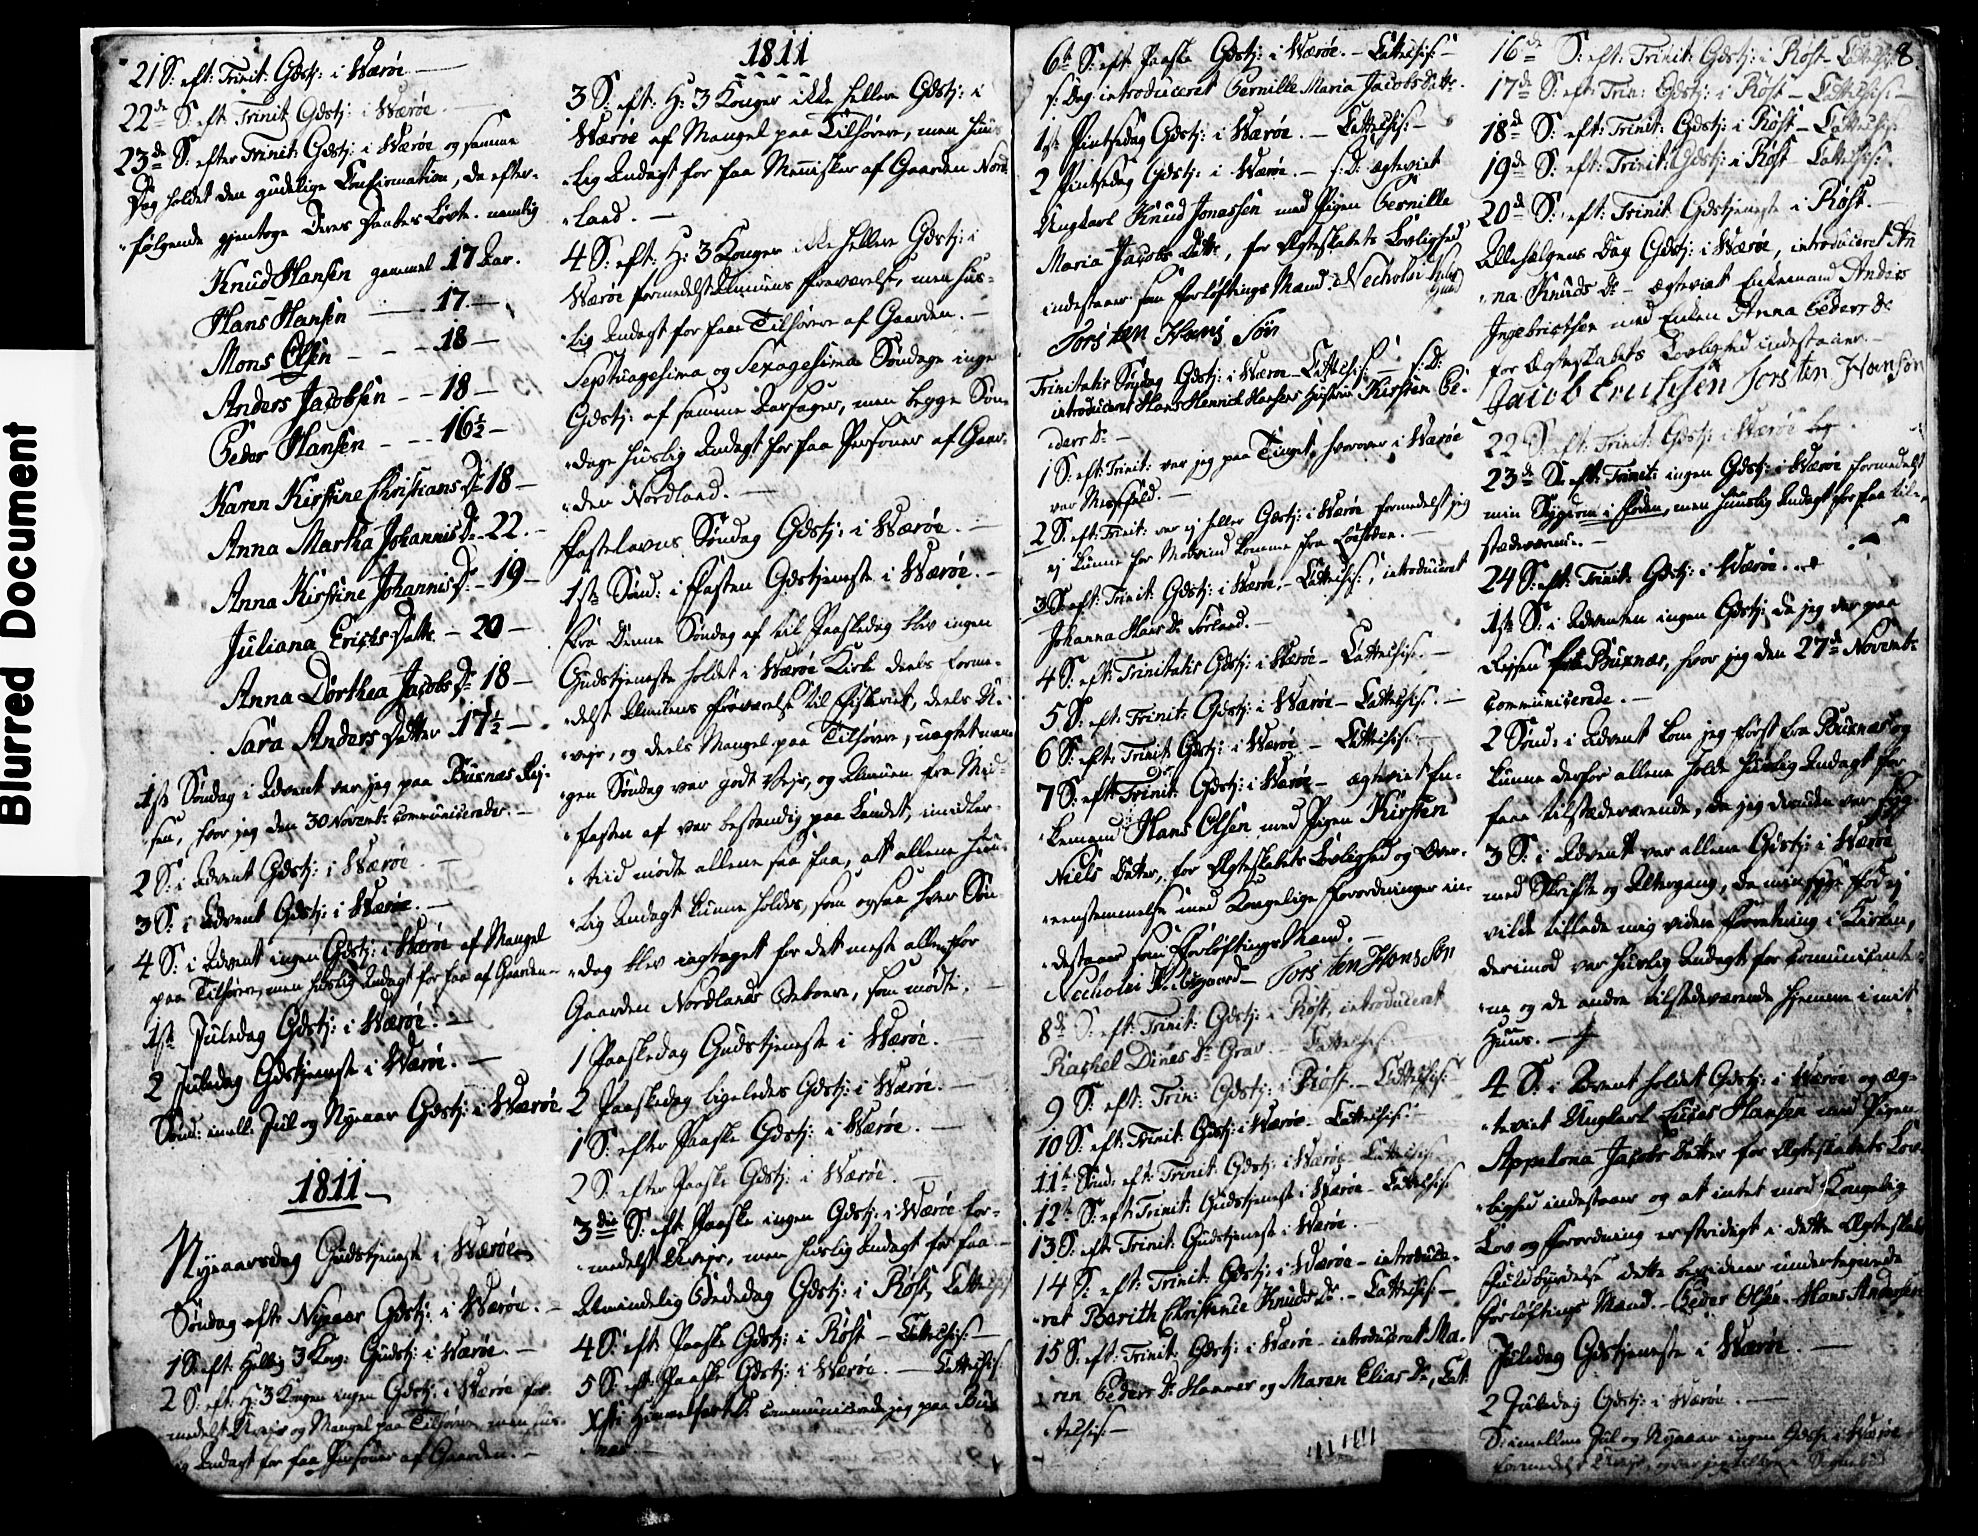 Blurred Document
21 S: eft: Trinit: Gdstj: i Værøe. —
22de S. eft Trinit Gdstj: i Værøe
23de S: efter Trinit: Gdstj: i Værøe og samme
Dag holdet den gudelige Confirmation, da efter-
følgende gjentoge Deres Daabes Løvte. nemlig
Knud Hansen gammel 17 Aar.
Hans Hansen — 17. —
Mons Olsen — — — 18 —
Anders Jacobsen — — 18 —
Peder Hansen — — 16½ —
Karen Kirstine Christians Dr 18 —
Anna Martha Johannis Dr 22. —
Anna Kirstine Johannis Dr — 19 —
Juliana Erichs Datter — 20 —
Anna Dorthea Jacobs Dr 18 —
Sara Anders Datter 17½ —
1ste Søndag i Advent var jeg paa Buxnæs Rej-
sen, hvor jeg den 30 Novembr communicerede. —
2 S: i Advent Gdstj: i Værøe. —
3 S: i Advent Gdstj: i Værøe. —
4 S: i Advent ingen Gdstj: i Værøe af Mangel
paa Tilhørere, men huslig Andagt for faa af Gaarden —
1ste Juledag Gdstj: i Værøe. —
2 Juledag Gdstjeneste i Værøe. —
Sønd: mell. Jul og Nyaaar Gdstj: i Værøe
1811 —
Nyeaarsdag Gudstjeneste i Værøe
Søndag eft: Nyaaar Gdstj: i Værøe. —
1 S eft: Hellig 3 Kong: Gudstj: i Værøe. —
2 S: eft: H: 3 Konger ingen Gdstj: i Værøe for-
medelst Uvejr og Mangel paa Tilhørere, men hus-
lig Andagt for faa Personer af Gaarden. —
1811
3 S: eft: H: 3 Konger ikke heller Gdstj: i
Værøe af Mangel paa Tilhørere, men huus-
lig Andagt for faa Mennisker af Gaarden Nord-
land. —
4 S: eft: H: 3 Konger ikke heller Gdstj: i
Værøe formedelst Almuens Fraværelse, men hus-
lig Andagt for faae Tilhørere af Gaarden. —
Septuagesima og Sexagesima Søndage ingen
Gdstj: af samme Aarsager, men begge Søn-
dage huslig Andagt for faa Personer af Gaar-
den Nordland. —
Fastelavns Søndag Gdstj: i Værøe. —
1ste Sønd: i Fasten Gdstjeneste i Værøe. —
Fra Denne Søndag af til Paaskedag blev ingen
Gudstjeneste holdet i Værøe Kirke deels forme-
delst Almuens Fraværelse til Fiskeriet, deels U-
vejr, og deels Mangel paa Tilhørere, uagtet man-
gen Søndag var godt Vejr, og Almuen fra Mid-
fasten af var bestændig paa Landet, imidler-
tiid mødte allene saa faa, att allene huus-
lig Andagt kunne holdes, som ogsaa hver Søn-
dag blev iagtaget for det meste allene for
Gaarden Nordlands Beboere, som mødte. —
1 Paaskedag Gudstjeneste i Værøe.
2 Paaskedag ligeledes Gdstj: i Værøe. —
1 S: efter Paaske Gdstj: i Værøe. —
2 S: efter Paaske Gdstj: i Værøe. —
3die S: eft: Paaske ingen Gdstj: i Værøe for-
medelst Uvejr, men huslig Andagt for faa —
Almindelig Bededag Gdstj: i Røst, Cattechis:
4 S: eft: Paaske Gdstj: i Røst — Cattechis: —
5 S: eft: Paaske Gdstj: i Værøe. — Cattechis:
Xsti Himmelfarts D: communicerede jeg paa Bux-
næs —
6te S: eft: Paaske Gdstj: i Værøe. — Cattechis: —
s: Dag introduceret Pernille Maria Jacobs Datter.
1ste Pintsedag Gdstj: i Værøe. — Cattechis: —
2 Pintsedag Gdstj: i Værøe. — s: D: ægteviet
Ungkarl Knud Jonassen med Pigen Pernille
Maria Jacobs Datter, for Ægteskabets Lovlighed
indestaaer som Forløftings Mænd. Necholai
Torsten Hans Søn
Trinitatis Søndag Gdstj: i Værøe — Cattechis: — s: D:
introduceret Hans Henrich Hansens Hustrue Kirsten Pe-
ders Dr —
1 S: eft: Trinit: var jeg paa Tinget, hvorover i Værøe
var Messfald. —
2 S: eft: Trinit: var ej heller Gdstj: i Værøe formedelst jeg
ej kunne for Modvind komme fra Lofoden. —
3 S: eft: Trinit: Gdstj: i Værøe. — Cattechis:, introduceret
Johanna Hans Dr Sørland. —
4 S: eft: Trinitatis Gdstj: i Værøe — Cattechis: —
5 S: eft: Trinit: Gdstj: i Værøe — Cattechis: —
6 S: eft: Trinit: Gdstj: i Værøe — Cattechis: —
7 S: eft: Trinit: Gdstj: i Værøe — ægteviet En-
kemand Hans Olsen med Pigen Kirsten
Niels Dater, for Ægteskabets Lovlighed og Over-
eenstemmelse med Kongelige Forordninger in-
destaaer som Forløftings Mænd. —
Necholai — Torsten Hans Søn
8de S: eft: Trinit: Gdstj: i Røst, introduceret
Rachel Dines Dr Grav. — Cattechis:
9 S: eft: Trin: Gdstj: i Røst. — Cattechis:
10 S: eft: Trinit: Gdstj: i Værøe — Cattechis:
11te Sønd: eft: Trinit: Gdstj: i Værøe — Cattechis:
12te S: eft: Trinit: Gudstjeneste i Værøe — Cattechis:
13 S: eft: Trinit: Gudstjeneste i Værøe. —
14 S: eft: Trinit: Gdstj: i Værøe — introduce-
ret Berith Christence Knuds Dr — Cattechis: —
15 S: eft: Trinit: Gdstj: i Værøe — introduceret Ma-
ren Peders Dr Hammer og Maren Elias Dr, Cat-
techis: —
16de S: eft: Trinit: Gdstj: i Røst — Cattechis: 8
17de S: eft: Trin: Gdstj: i Røst — Cattechis: —
18de S: eft: Trinit: Gdstj: i Røst — Cattechis:
19de S: eft: Trinit: Gdstj: i Røst — Cattechis:
20de S: eft: Trinit Gdstjeneste i Røst. —
Allehelgens Dag Gdstj: i Værøe, introduceret An-
na Knuds Dr — ægteviet Enkemand Anders
Ingebrigtsen med Enken Anna Peders Dr
for Ægteskabets Lovlighed indestaaer. —
Jacob Erichsen Torsten Hanson
22 S: eft: Trinit: Gdstj: i Værøe og
23de S: eft: Trinit: ingen Gdstj: i Værøe formedelst
min Sygdom i Foden, men huuslig Andagt for faa til-
stædeværende. —
24 S: eft: Trinit: Gdstj: i Værøe.
1ste S: i Adventen ingen Gdstj: da jeg var paa
Rejsen til Buxnæs, hvor jeg den 27de Novembr
communicerede. —
2 Sønd: i Advent kom jeg først fra Buxnæs og
kunne derfor allene holde huuslig Andagt for
faae tilstædeværende, da jeg desuden var syg.
3 S: i Advent var allene Gdstj: i Værøe
med Skrifte og Altergang, da min syge Fod ej
vilde tillade mig viden Forretning i Kirken,
derimod var huuslig Andagt for Communicente-
ne og de andre tilstedeværende hjemme i mit
Huus. —
4 S: i Advent holdet Gdstj: i Værøe og æg-
teviet Ungkarl Lucas Hansen med Pigen
Appelona Jacobs Datter for Ægteskabets Lov-
lighed indestaaer og at intet mod Kongelig
Lov og Forordning er stridigt i dette Ægteskabs
Fuldbyrdelse dette bevidner undertegnede
Forløftings Mænd. — Peder Olsen. Hans Andersen
Juledag Gdstjeneste i Værøe. —
2 Juledag Gdstj: i Værøe. —
S: imellem Jul og Nyaaar ingen Gdstj: i Værøe
formedelst Uvejr,